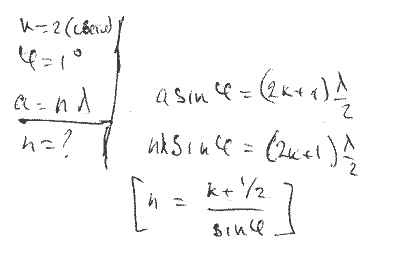 k=2 (свет)
φ=1°
a = n λ
n=?
a sin φ = (2k+1) λ/2
nλ sin φ = (2k+1) λ/2
[n = k+1/2 / sin φ]